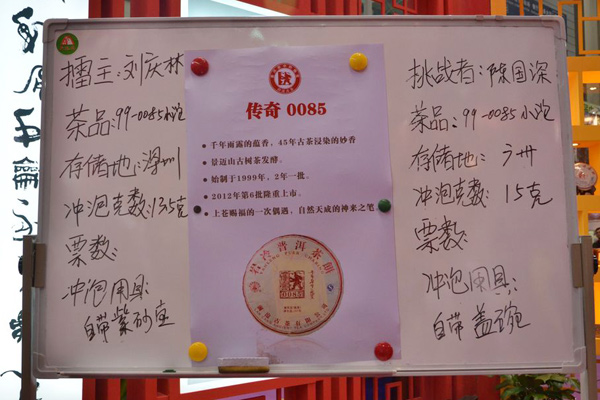 擂主:刘庆林
茶品:99-0085小沱
存储地:深圳
冲泡克数:13.5克
票数:
冲泡用具:
自带紫砂座
传奇 0085
千年雨露的蕴香,45年古茶浸染的妙香
景迈山古树茶发酵。
始制于1999年,2年一批。
2012年第6批隆重上市。
上苍赐福的一次偶遇,自然天成的神来之笔
岩冷普洱茶
0085
挑战者:陈国深
茶品:99-0085小沱
存储地:广州
冲泡克数:15克
票数:
冲泡用具:
自带盖碗